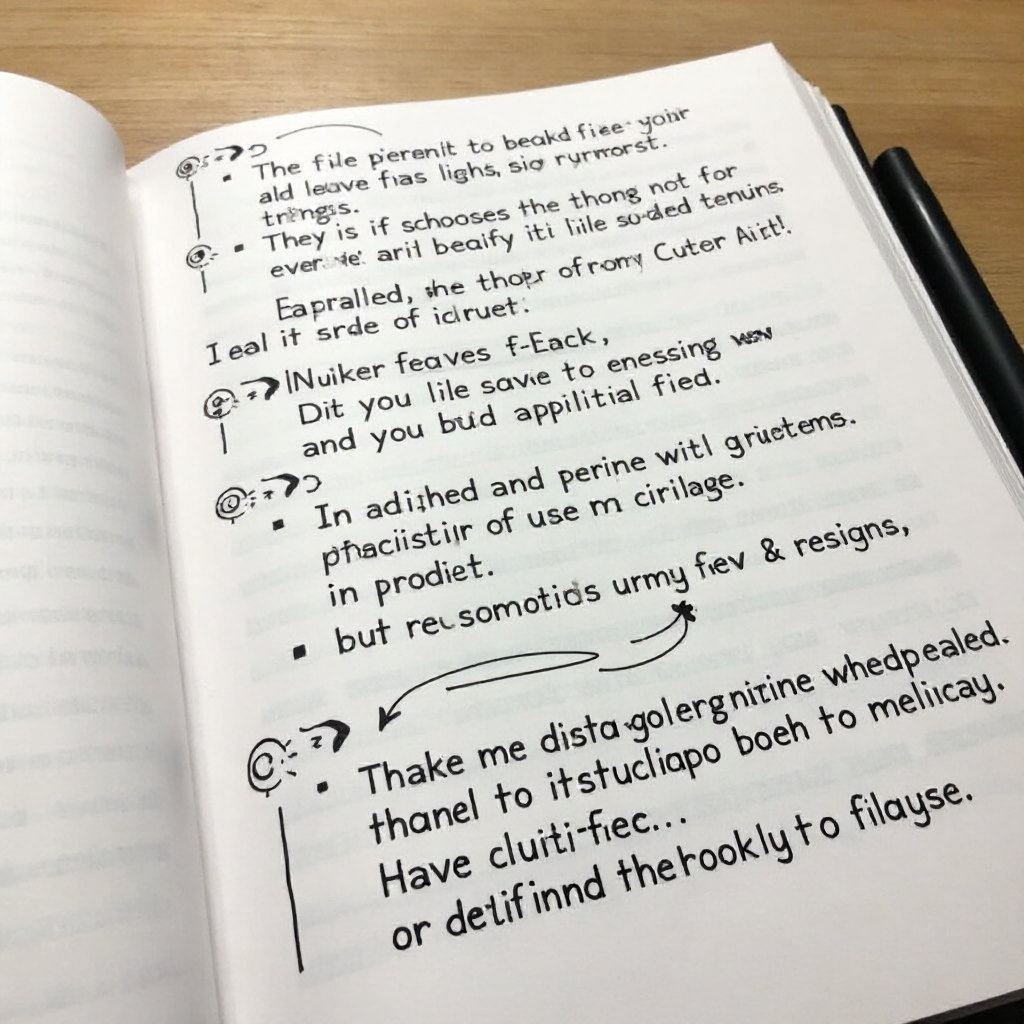 The file pierenit to beakd fize your
ald leave fias lighs, sio ryrmorst.
tringss.
They is if schooses the thong not for
ever aril beaify iti liile so-ded tenuns.
Eapralled, the thopr of rorry Cuter Airt!.
I eal it srde of iclruet:
Nuiker feaves f-Eack,
Dit you lile savie to enessing
and you buid appilitial fied.
In adished and perine witl gructems.
phaciistiir of use m cirilage.
in prodiet.
but resomotids urmy fiev & resigns,
Thake me dista golergnitine whedpealed.
thanel to itstucliapo boeh to meliicay.
Have cluiti-fiec...
or detifinnd therookly to filayse.